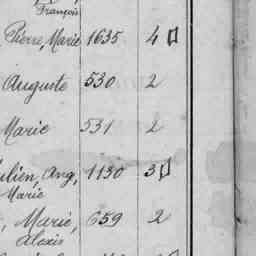 François
Pierre, Marie 1635 4
Auguste 530 2
Marie 531 2
ulien, Ang, 1130 3
Marie
, Marie, 659 2
Alexis